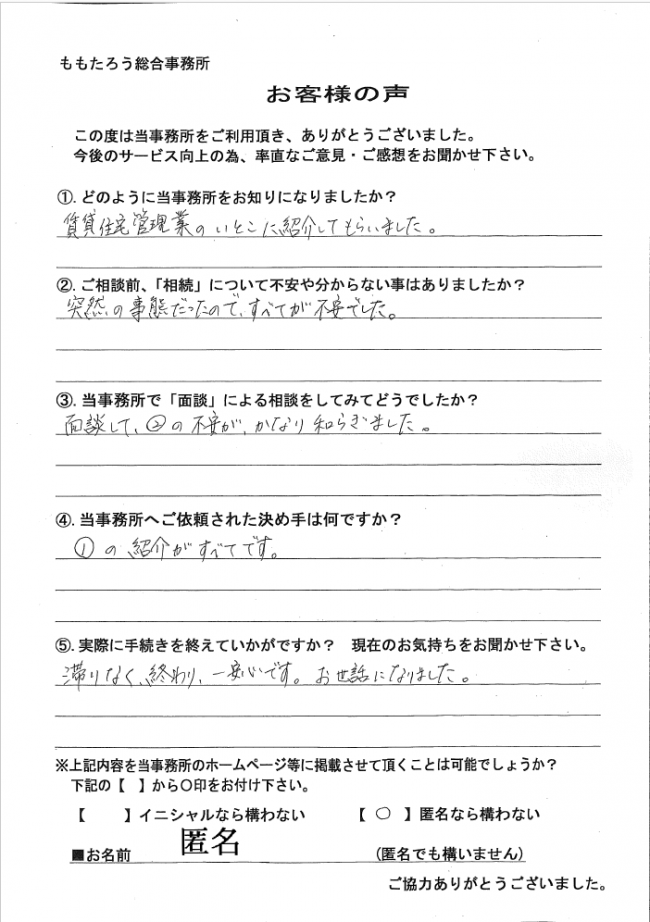 ももたろう総合事務所
お客様の声
この度は当事務所をご利用頂き、ありがとうございました。
今後のサービス向上の為、率直なご意見・ご感想をお聞かせ下さい。
①. どのように当事務所をお知りになりましたか？
賃貸住宅管理業のいとこに紹介してもらいました。
②. ご相談前、「相続」について不安や分からない事はありましたか？
突然の事態だったので、すべてが不安でした。
③. 当事務所で「面談」による相談をしてみてどうでしたか？
面談して、②の不安が、かなり和らぎました。
④. 当事務所へご依頼された決め手は何ですか？
①の紹介がすべてです。
⑤. 実際に手続きを終えていかがですか？　現在のお気持ちをお聞かせ下さい。
滞りなく、終わり、一安心です。お世話になりました。
※上記内容を当事務所のホームページ等に掲載させて頂くことは可能でしょうか？
下記の【　】から〇印をお付け下さい。
【　　】イニシャルなら構わない　　【 〇 】匿名なら構わない
■お名前　匿名　(匿名でも構いません)
ご協力ありがとうございました。